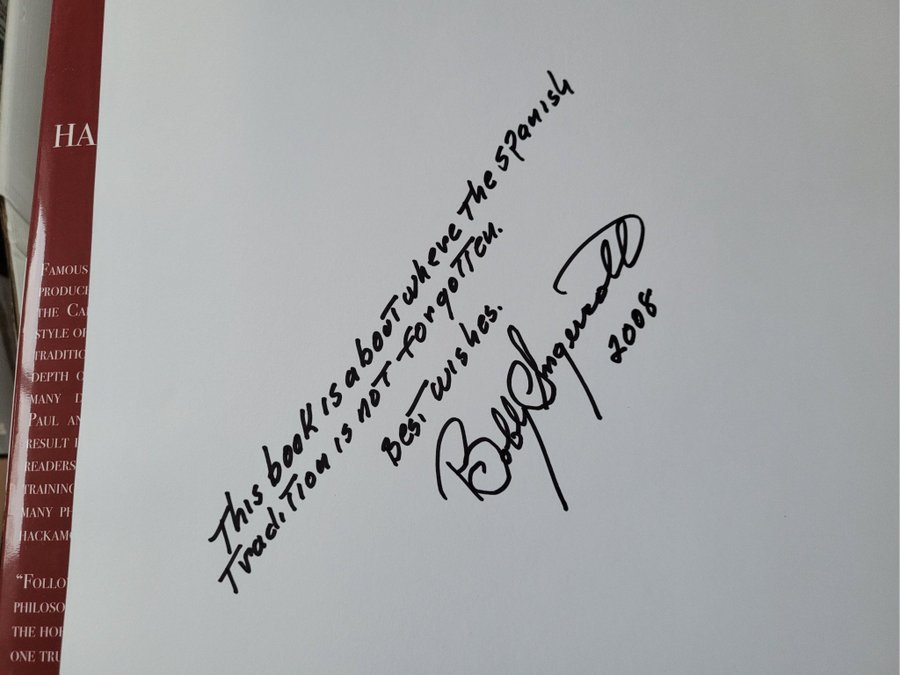 HA
FAMOUS
PRODUCE
THE CA
STYLE OF
TRADITIO
DEPTH O
MANY D
PAUL AN
RESULT I
READERS
TRAINING
MANY PH
HACKAMO
"FOLLO
PHILOSO
THE HOR
ONE TRU
This book is about where the Spanish
Tradition is not forgotten.
Best wishes.
Bobby Ingersoll
2008